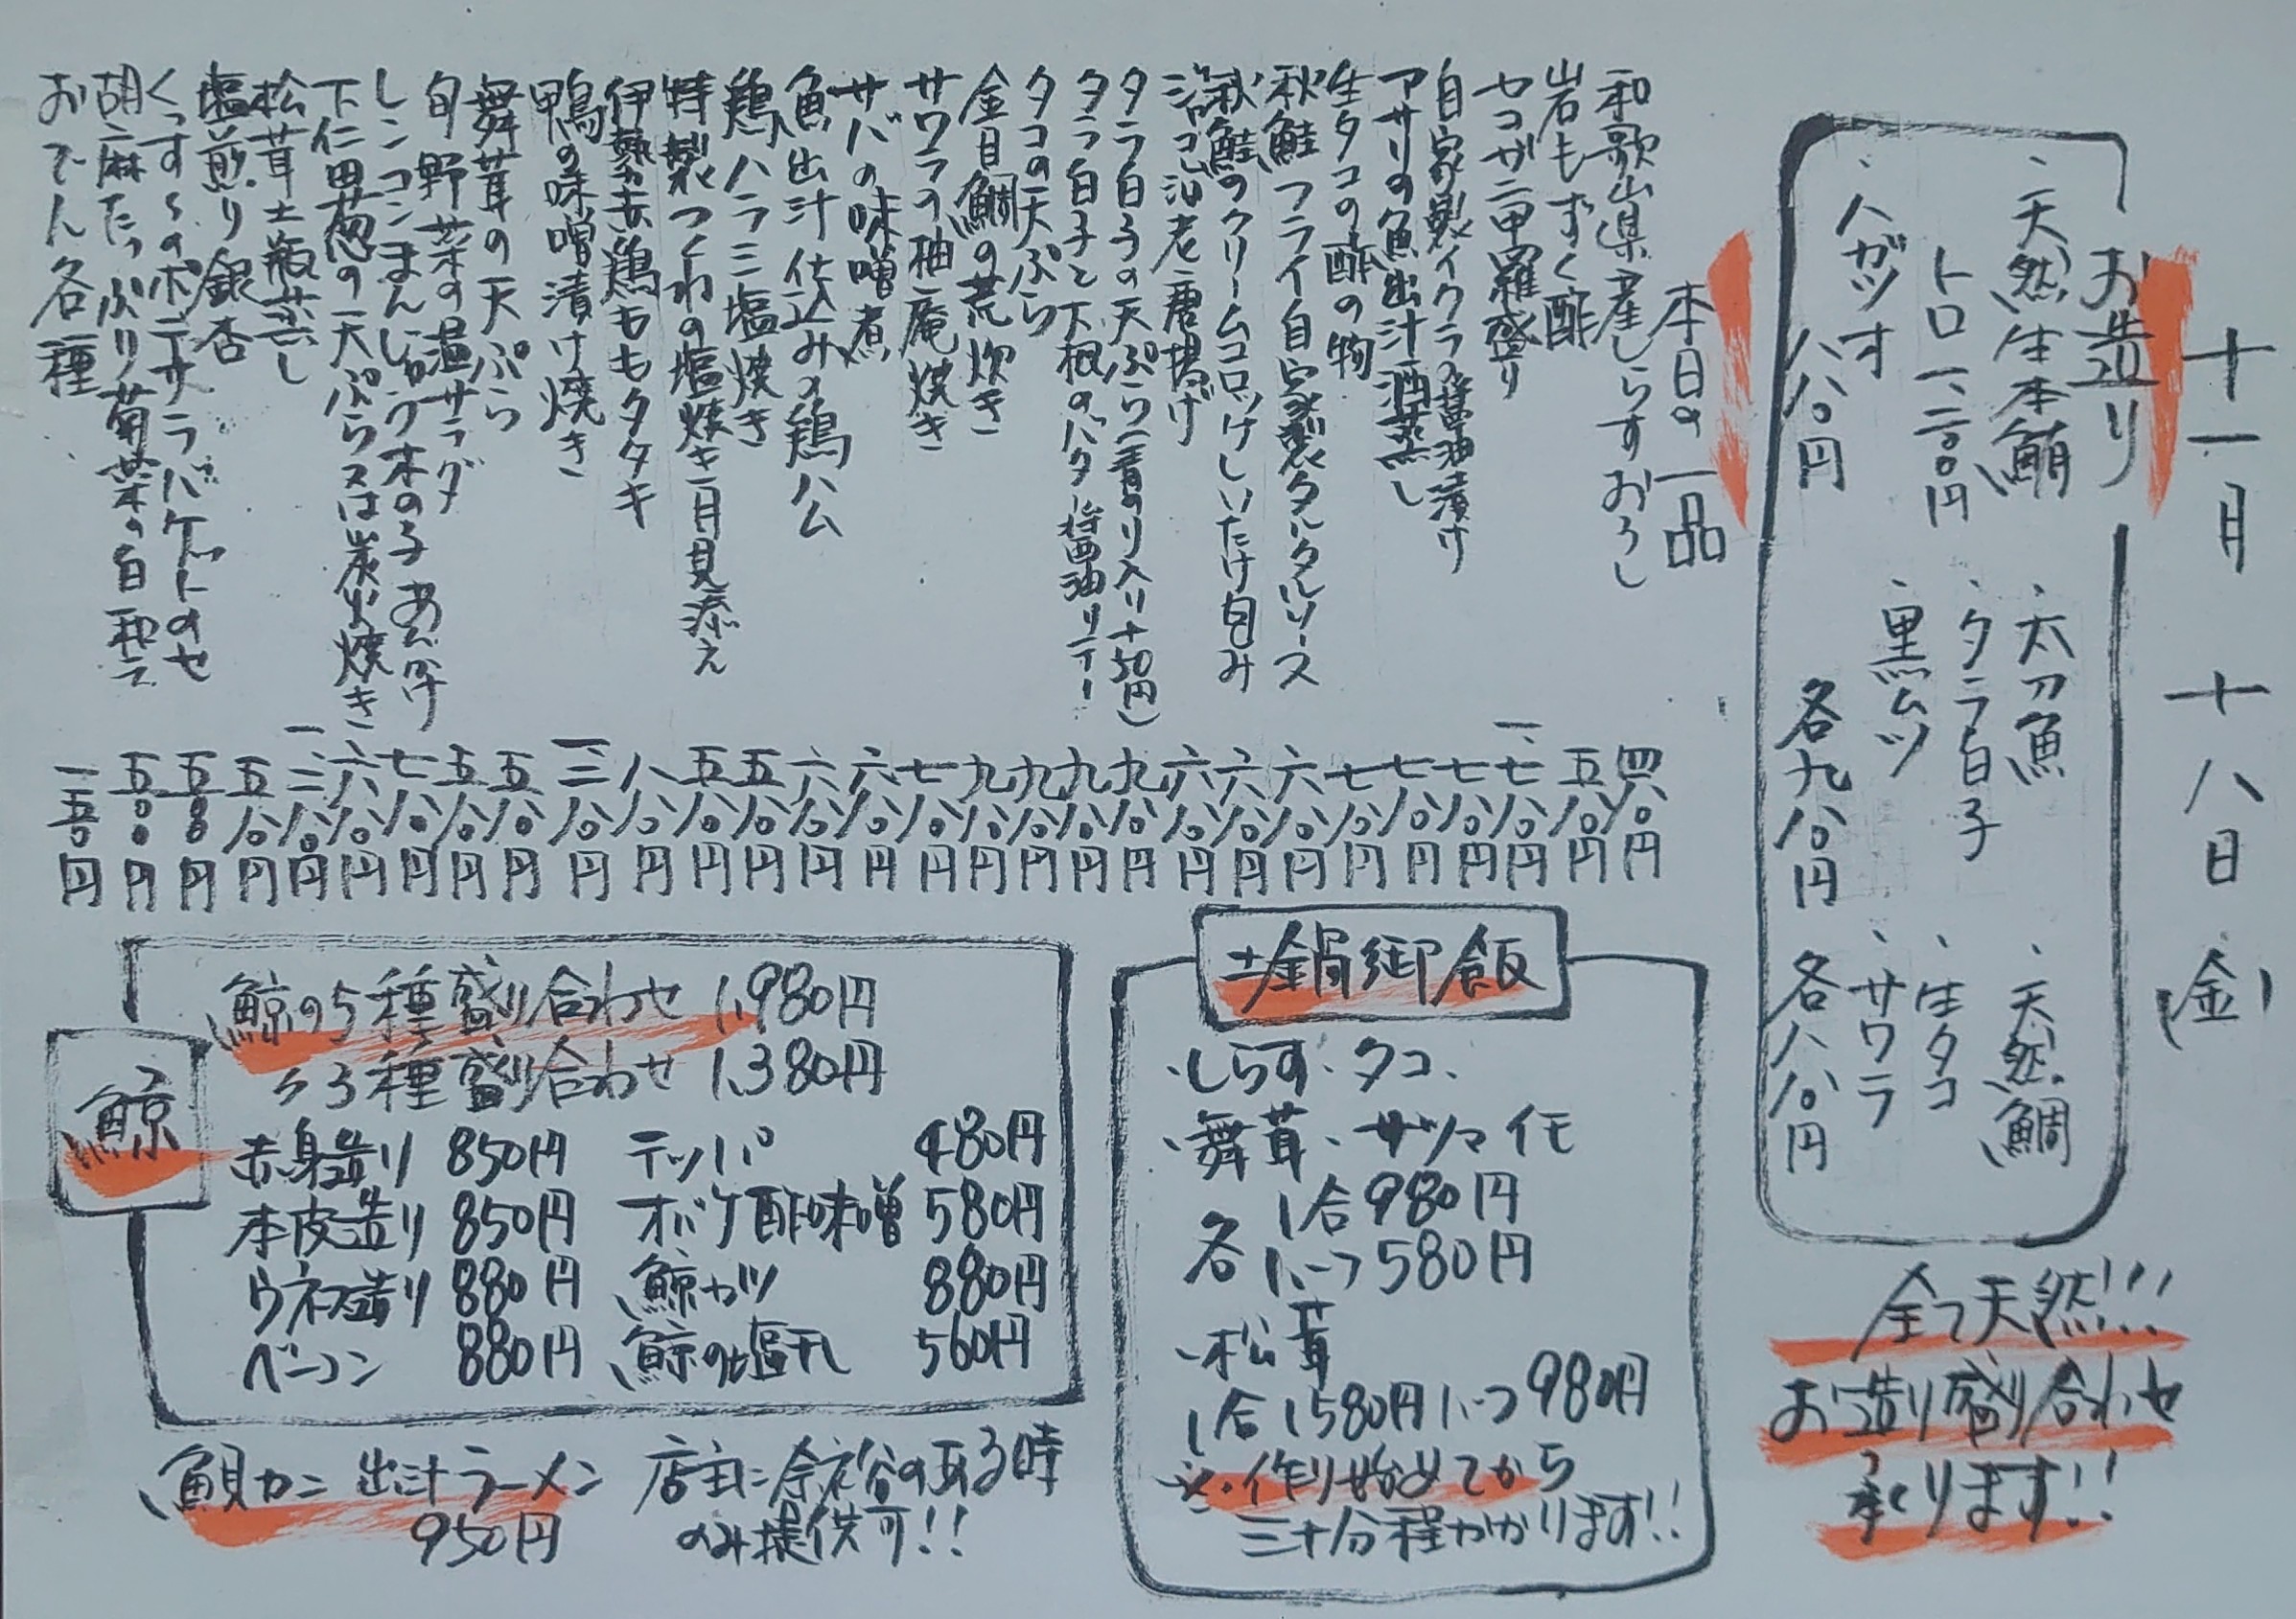 十一月 十八日(金)
お造り
、天然生本鮪
トロ 一、二〇〇円
、ハガツオ
八八〇円
、太刀魚
、タラ白子
、黒ムツ
各九八〇円
、天然鯛
、生タコ
、サワラ
各八八〇円
全て天然!!!
お造り盛り合わせ
承ります!!
本日の一品
和歌山県産しらすおろし 四八〇円
岩もずく酢 五八〇円
セコガニ甲羅盛り 一、七八〇円
自家製イクラの醤油漬け 七八〇円
アサリの魚出汁酒蒸し 七八〇円
生タコの酢の物 七八〇円
秋鮭フライ自家製タルタルソース 六八〇円
秋鮭のクリームコロッケしいたけ包み 六八〇円
海老唐揚げ 六八〇円
タラ白子の天ぷら(青のり入り+50円) 九八〇円
タラ白子と下根のバター醤油ソテー 九八〇円
タコの天ぷら 九八〇円
金目鯛の荒炊き 九八〇円
サワラの柚庵焼き 七八〇円
サバの味噌煮 六八〇円
魚出汁仕込みの鶏ハム 六八〇円
鶏ハラミ塩焼き 五八〇円
特製つくねの塩焼き 月見添え 五八〇円
伊勢赤鶏ももタタキ 八八〇円
鴨の味噌漬け焼き 一、二八〇円
舞茸の天ぷら 五八〇円
旬野菜の温サラダ 五八〇円
レンコンまんじゅう木の子あんかけ 七八〇円
下仁田葱の天ぷら又は炭火焼き 六八〇円
松茸土瓶蒸し 一、二八〇円
塩煎り銀杏 五八〇円
くっすぅのポテサラバケットのせ 五〇〇円
胡麻たっぷり菊菜の白和え 五〇〇円
おでん各種 一五〇円
土鍋御飯
・しらす・タコ、
、舞茸、サツマイモ
各 1合980円
1/2つ580円
、松茸
1合1580円 1/2つ980円
※・作り始めてから
三十分程かかります!!
鯨
鯨の5種盛り合わせ 1,980円
〃3種盛り合わせ 1,380円
赤身造り 850円 テッパ 480円
本皮造り 850円 オバケ酢味噌 580円
ウネス造り 880円 鯨カツ 880円
ベーコン 880円 鯨の塩干し 560円
カニ 出汁ラーメン 950円
店主に余裕のある時
のみ提供可!!